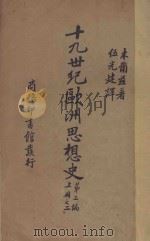 木爾茲著
伍光建譯
十九世紀歐洲思想史
第二編
上冊之二
商務印書館發行